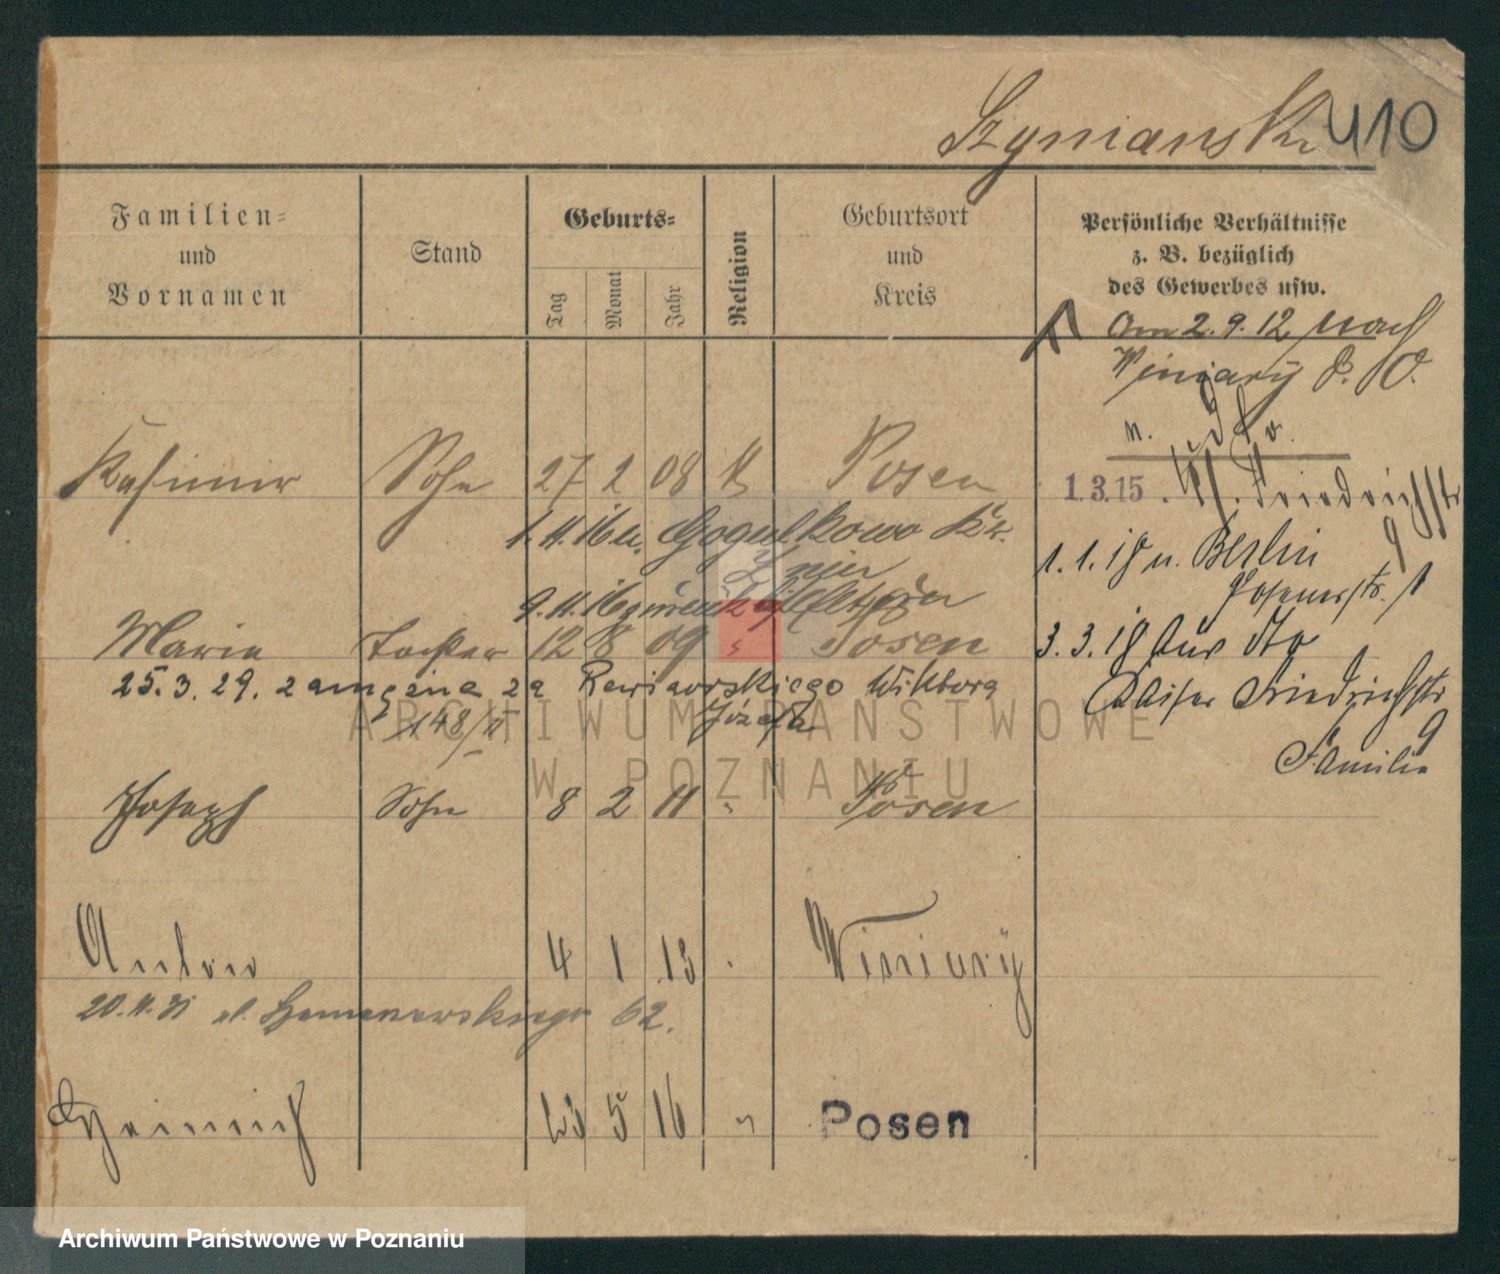 Szymanski 410
Familien-
und
Vornamen
Stand
Geburts-
Tag
Monat
Jahr
Religion
Geburtsort
und
Kreis
Persönliche Verhältnisse
z. B. bezüglich
des Gewerbes usw.
Am 2.9.12 nach
Winiary P. O.
n.
Kasimir Sohn 27 2 08 K Posen
1.3.15. Friedrichstr
9
1.11.16 n. Gogulkowo Kr.
Znin
1.1.18 n. Berlin
Posenerstr. 1
9.11.16 zurück
Marie Tochter 12 8 09 " Posen
3.3.18 aus dto
25.3.29. zamężna za Rewiarskiego Wiktora
Józefa
148/II
Kaiser Friedrichstr
9
Familie
Joseph Sohn 8 2 11 " Posen
Anton 4 1 13 " Winiary
20.11.31 62.
Heinrich 23 5 16 " Posen
ARCHIWUM PAŃSTWOWE
W POZNANIU
Archiwum Państwowe w Poznaniu